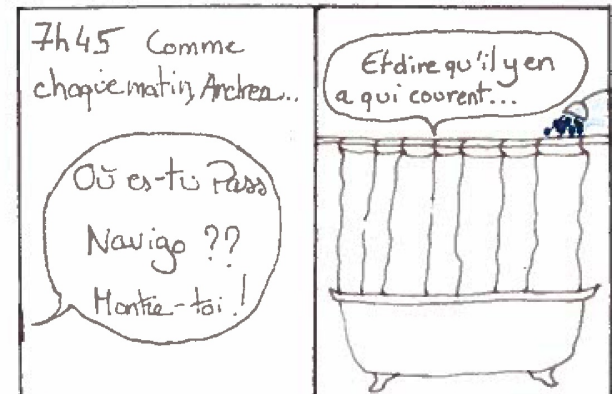 7h45 Comme
chaque matin, Andrea...
Où es-tu Pass
Navigo ??
Montre-toi !
Et dire qu'il y en
a qui courent...